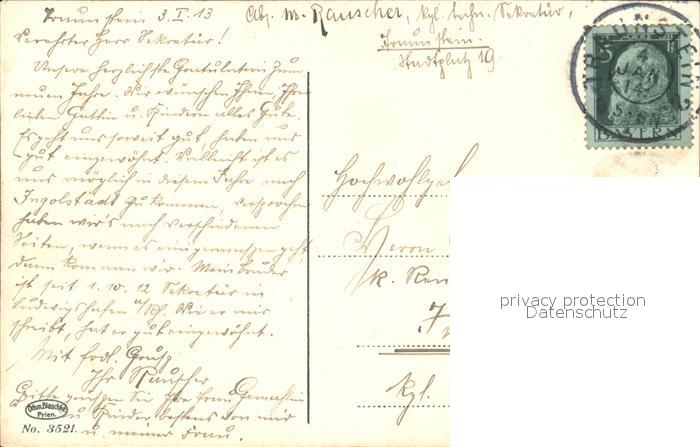 Traunstein 3.I.13
Abs. M. Rauscher, kgl. bahn. Sekretär,
Traunstein.
Stadtplatz 19.
Verehrter Herr Sekretär!
Unsere herzlichste Gratulation zum
neuen Jahre. Wir wünschen Ihnen, Ihrer
lieben Gattin u. Kindern alles Gute.
Es geht uns soweit gut, haben uns
gut eingewöhnt. Vielleicht ist es
uns möglich in diesem Jahre nach
Ingolstadt zu kommen, versprochen
haben wir's nach verschiedenen
Seiten, wenn es einigermassen geht,
dann kommen wir. Mein Bruder
ist seit 1.10.12 Sekretär in
Ludwigshafen a/Rh. Wie er mir
schreibt, hat er gut eingewöhnt.
Mit frdl. Gruss
Ihr Rauscher
Bitte grüssen Sie Ihre Frau Gemahlin
u. Kinder bestens von mir
u. meiner Frau.
Hochwohlgeb
Herrn
k. Ren
kgl.
5
BAYERN
TRAUNSTEIN
JAN
Othm. Blaschke
Prien.
No. 3521.
privacy protection
Datenschutz